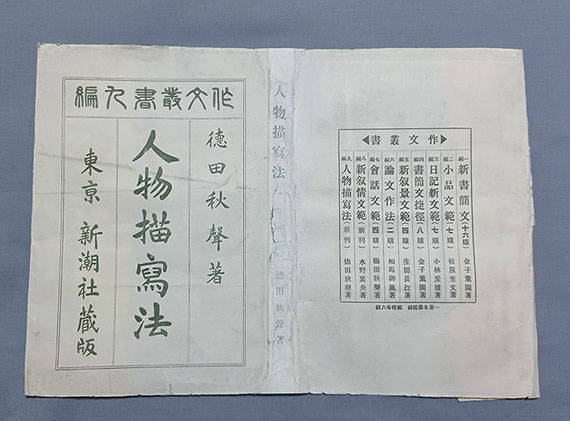 作文叢書九編
德田秋聲著
人物描寫法
東京 新潮社藏版
人物描寫法 德田秋聲著
作文叢書
一編 新書簡文(十六版) 金子薰園著
二編 小品文範(七版) 松原至文著
三編 日記新文範(七版) 小林愛雄著
四編 書簡文捷徑(八版) 金子薰園著
五編 新叙景文範(四版) 生田長江著
六編 論文作法(二版) 相馬御風著
七編 會話文範(四版) 德田秋聲著
八編 新叙情文範(新刊) 水野葉舟著
九編 人物描寫法(新刊) 德田秋聲著